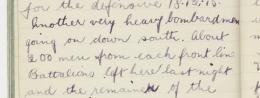 for the defensive 18-12-15.
Another very heavy bombardmen
going on down south. About
200 men from each front line
Battalions left here last night
and the remainder of the